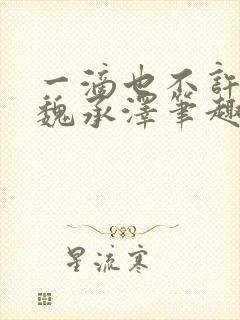 一滴也不許
魏承澤筆趣
星流寒